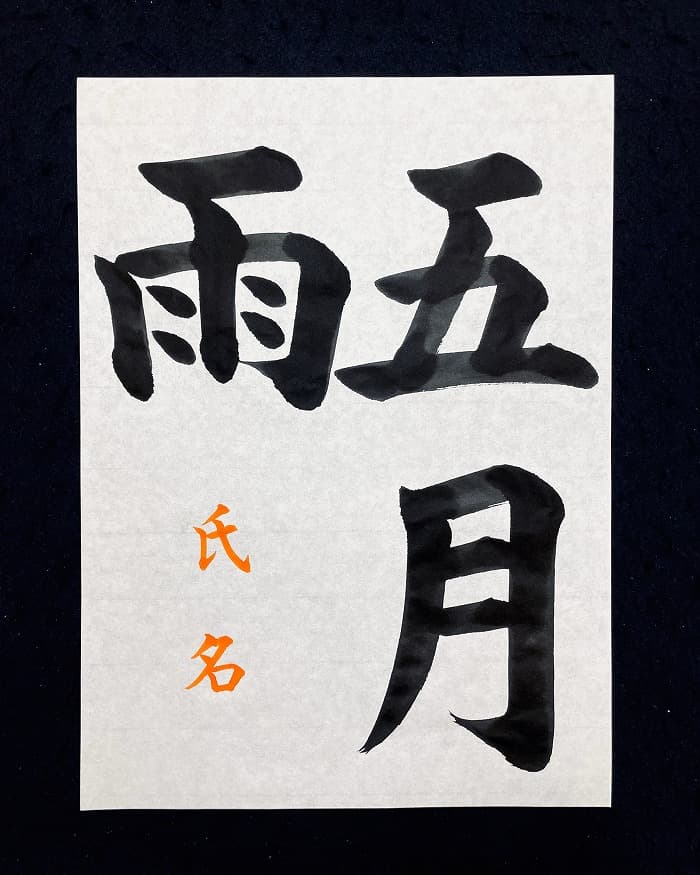 五月
雨
氏名